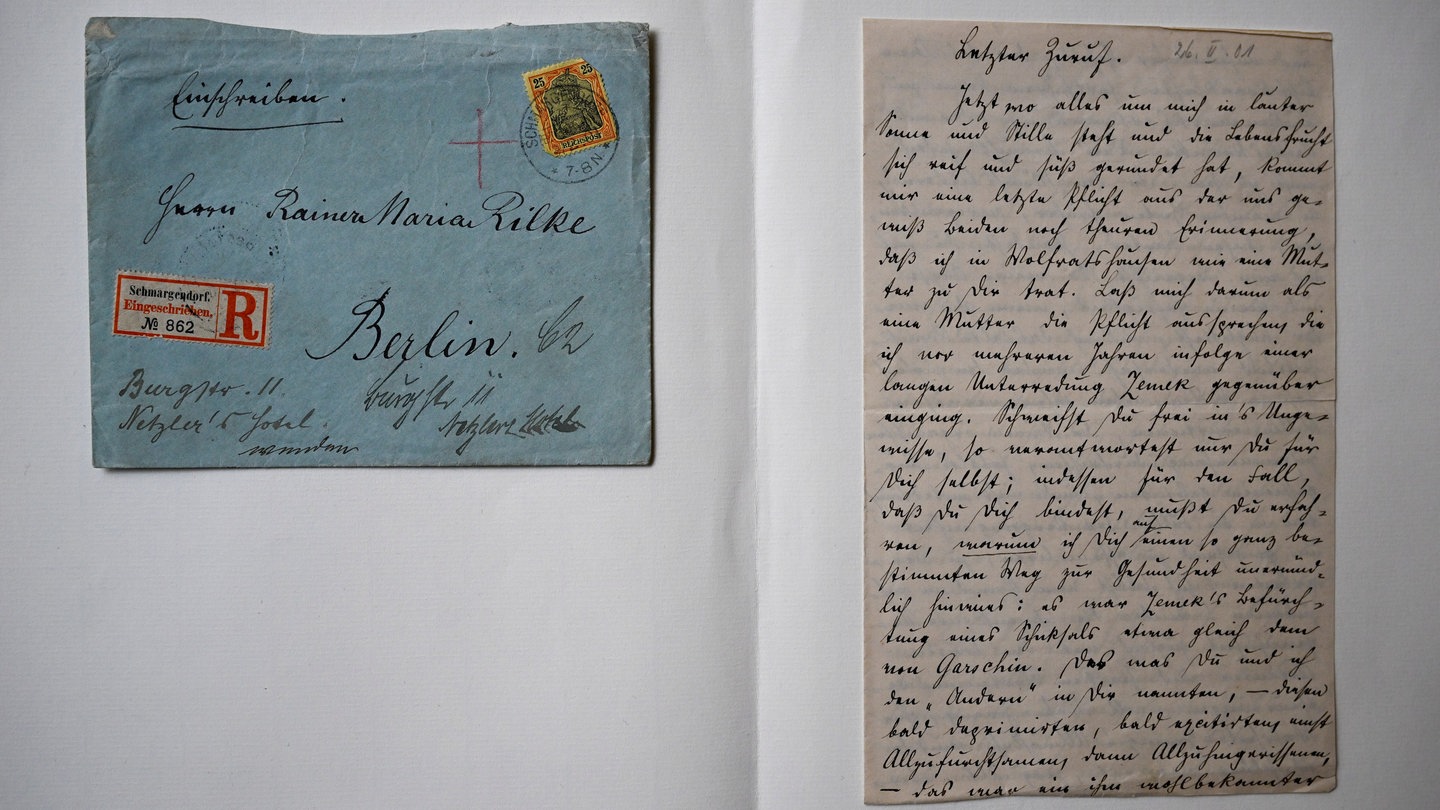 Einschreiben.
25 25
REICHSPOST
SCHMARGENDORF
* 7-8N *
Herrn Rainer Maria Rilke
Schmargendorf.
Eingeschrieben.
№ 862
R
Berlin. C2
Burgstr. 11.
Netzler's Hotel.
Burgstr 11
Netzlers Hotel
wenden
Letzter Zuruf. 26. II. 01
Jetzt wo alles um mich in lauter
Sonne und Stille steht und die Lebensfrucht
sich reif und süß gerundet hat, kommt
mir eine letzte Pflicht aus der uns ge-
wiß Beiden noch theuren Erinnerung,
daß ich in Wolfratshausen wie eine Mut-
ter zu Dir trat. Laß mich darum als
eine Mutter die Pflicht aussprechen, die
ich vor mehreren Jahren infolge einer
langen Unterredung Zemek gegenüber
einging. Schweifst Du frei in's Unge-
wisse, so verantwortest nur Du für
Dich selbst; indessen für den Fall,
daß Du Dich bindest, mußt Du erfah-
ren, warum ich Dich auf einen so ganz be-
stimmten Weg zur Gesundheit unermüd-
lich hinwies: es war Zemek's Befürch-
tung eines Schicksals etwa gleich dem
von Garschin. Das was Du und ich
den „Andern" in Dir nannten, — diesen
bald deprimirten, bald excitirten, einst
Allzufurchtsamen, dann Allzuhingerissenen,
— das war ein ihm wohlbekannter